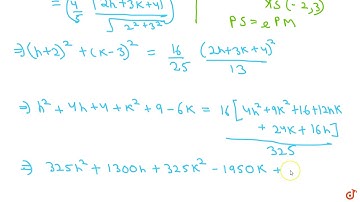 = (4/5 |2h+3k+4| / √(2²+3²))²
XS(-2,3)
PS = e PM
⇒ (h+2)² + (k-3)² = 16/25 (2h+3k+4)²/13
⇒ h² + 4h + 4 + k² + 9 - 6k = 16[4h² + 9k² + 16 + 12hk + 24k + 16h] / 325
⇒ 325h² + 1300h + 325k² - 1950k +